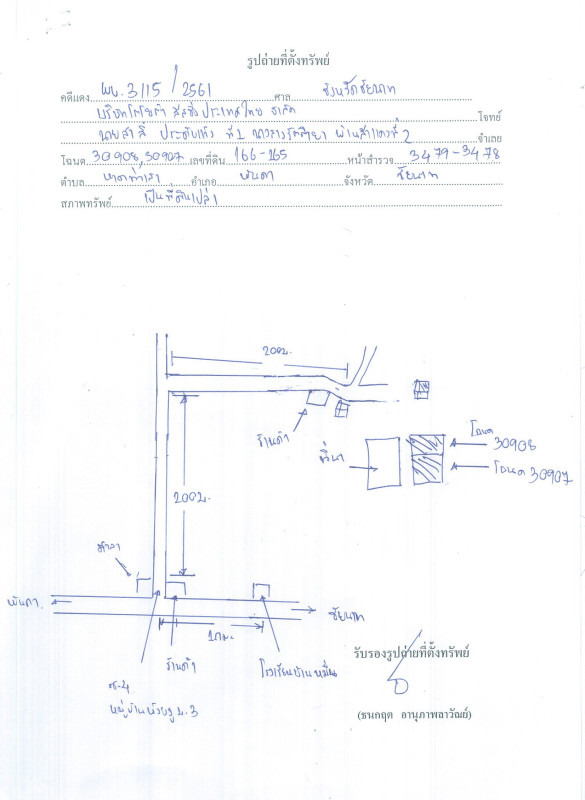 รูปถ่ายที่ตั้งทรัพย์
คดีแดง ผบ.3115/2561 ศาล จังหวัดชัยนาท
บริษัทโตโยต้า ลีสซิ่ง ประเทศไทย จำกัด โจทย์
นายสาลี่ ที่1 ที่2 จำเลย
โฉนด 30908,30907 เลขที่ดิน 166-165 หน้าสำรวจ 3479-3478
ตำบล หาดท่าเสา อำเภอ จังหวัด ชัยนาท
สภาพทรัพย์ เป็นที่ดินเปล่า
200ม.
ร้านค้า
ที่นา
โฉนด
30908
โฉนด 30907
200ม.
ศาลา
ชัยนาท
1กม.
ร้านค้า
โรงเรียนบ้าน
ซ.4
หมู่บ้าน ม.3
รับรองรูปถ่ายที่ตั้งทรัพย์
(ธนกฤต อานุภาพลาวัณย์)